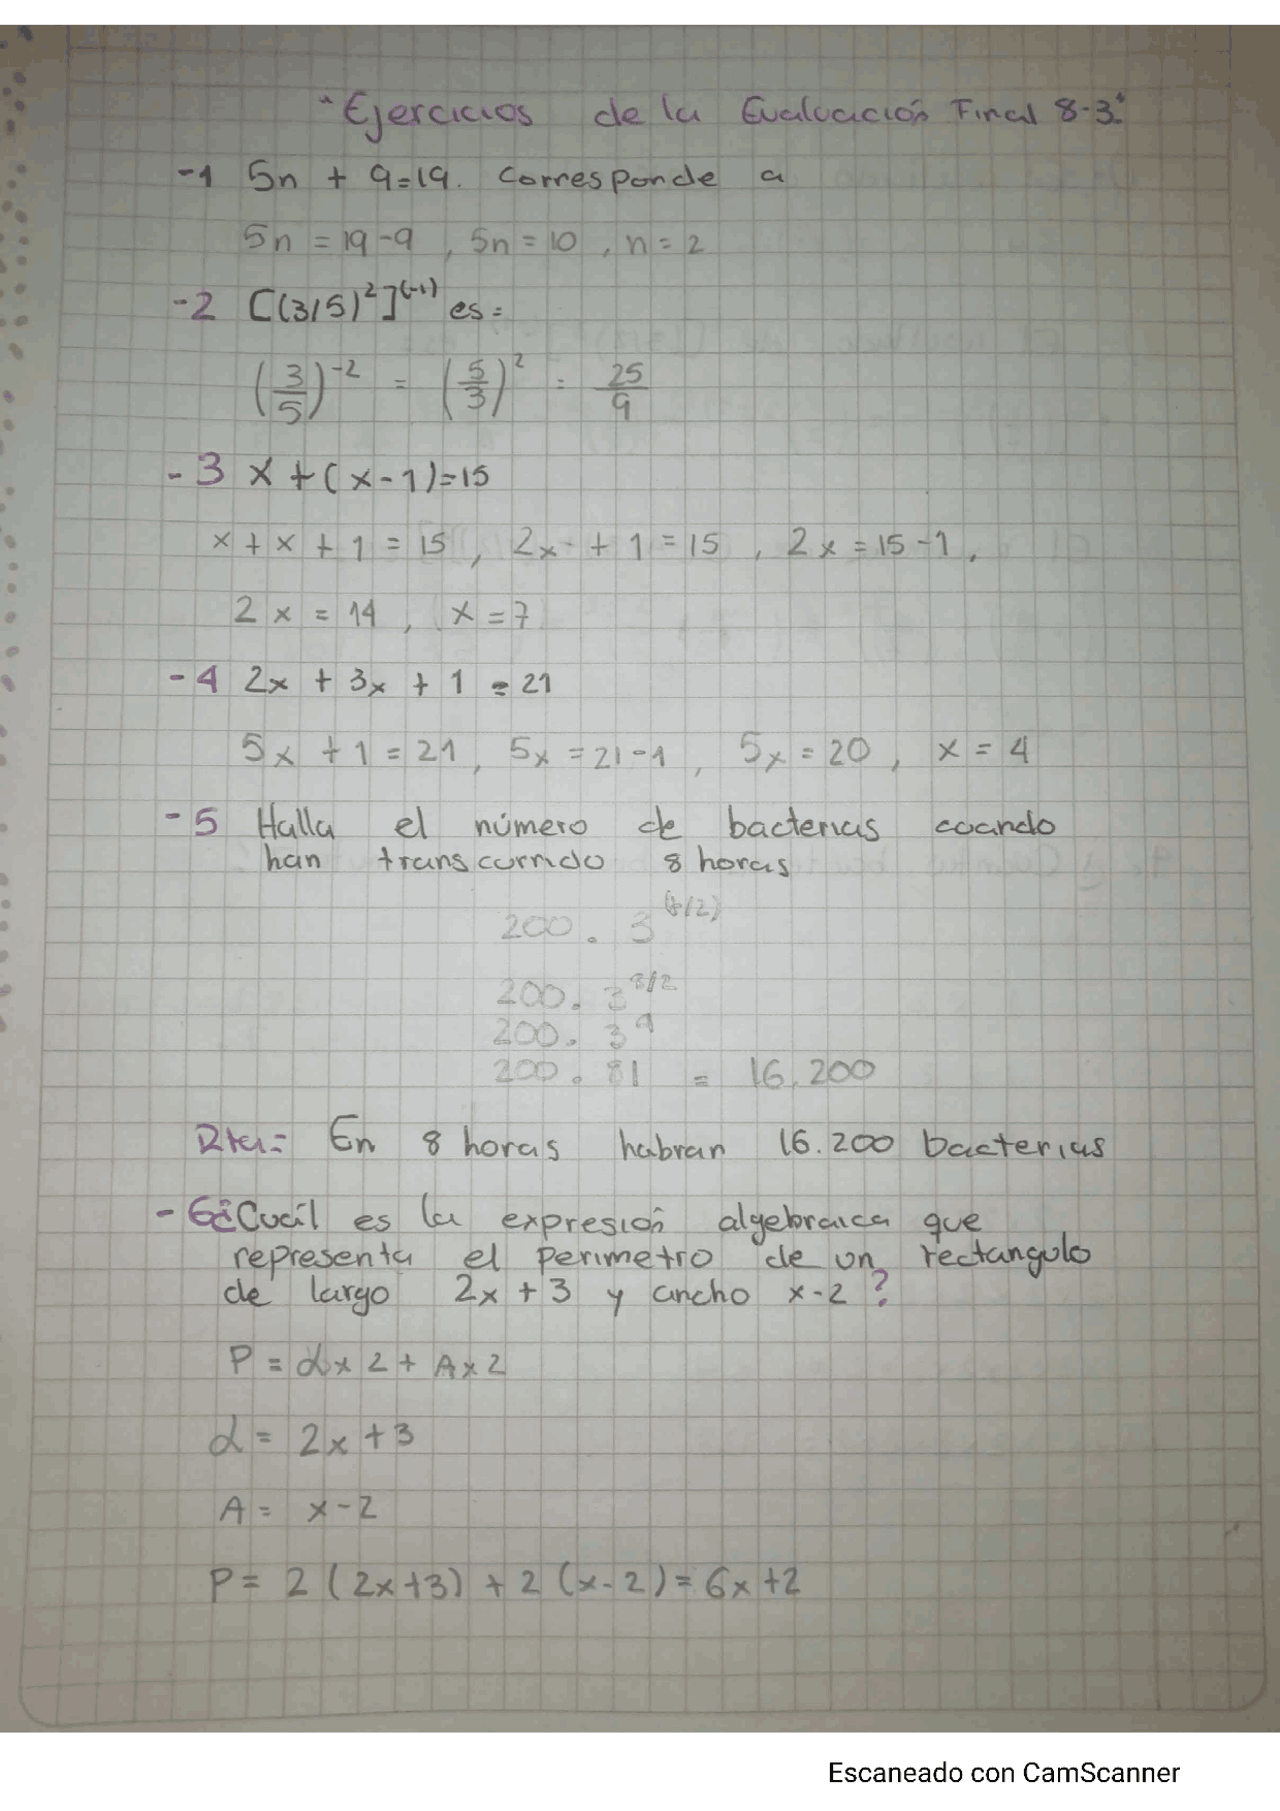 "Ejercicios de la Evaluación Final 8-3"
-1 5n + 9=19. Corresponde a
5n = 19-9, 5n = 10, n = 2
-2 [(3/5)²]⁽⁻¹⁾ es:
(3/5)⁻² = (5/3)² = 25/9
-3 x + (x-1)=15
x + x + 1 = 15, 2x + 1 = 15, 2x = 15-1,
2x = 14, x = 7
-4 2x + 3x + 1 = 21
5x + 1 = 21, 5x = 21-1, 5x = 20, x = 4
-5 Halla el número de bacterias cuando
han transcurrido 8 horas
200 . 3
200. 3^8/2
200. 3⁴
200. 81 = 16.200
Rta= En 8 horas habran 16.200 bacterias
-6 ¿Cuál es la expresión algebraica que
representa el perimetro de un rectangulo
de largo 2x + 3 y ancho x-2?
P = L x 2 + A x 2
L = 2x + 3
A = x-2
P = 2 (2x+3) + 2 (x-2) = 6x+2
Escaneado con CamScanner